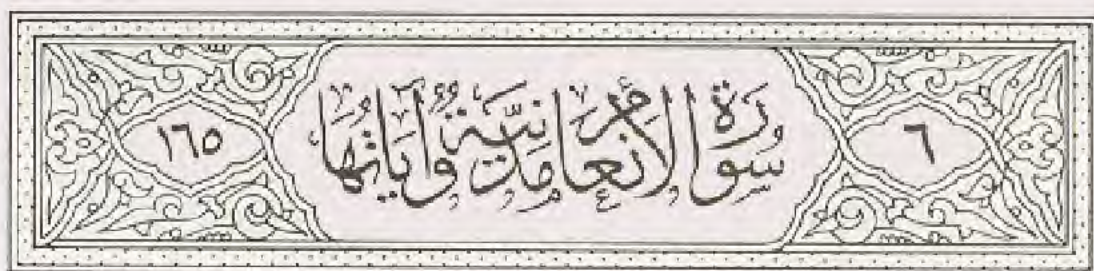 ٦ سورة الانعام مدنية وآياتها ١٦٥